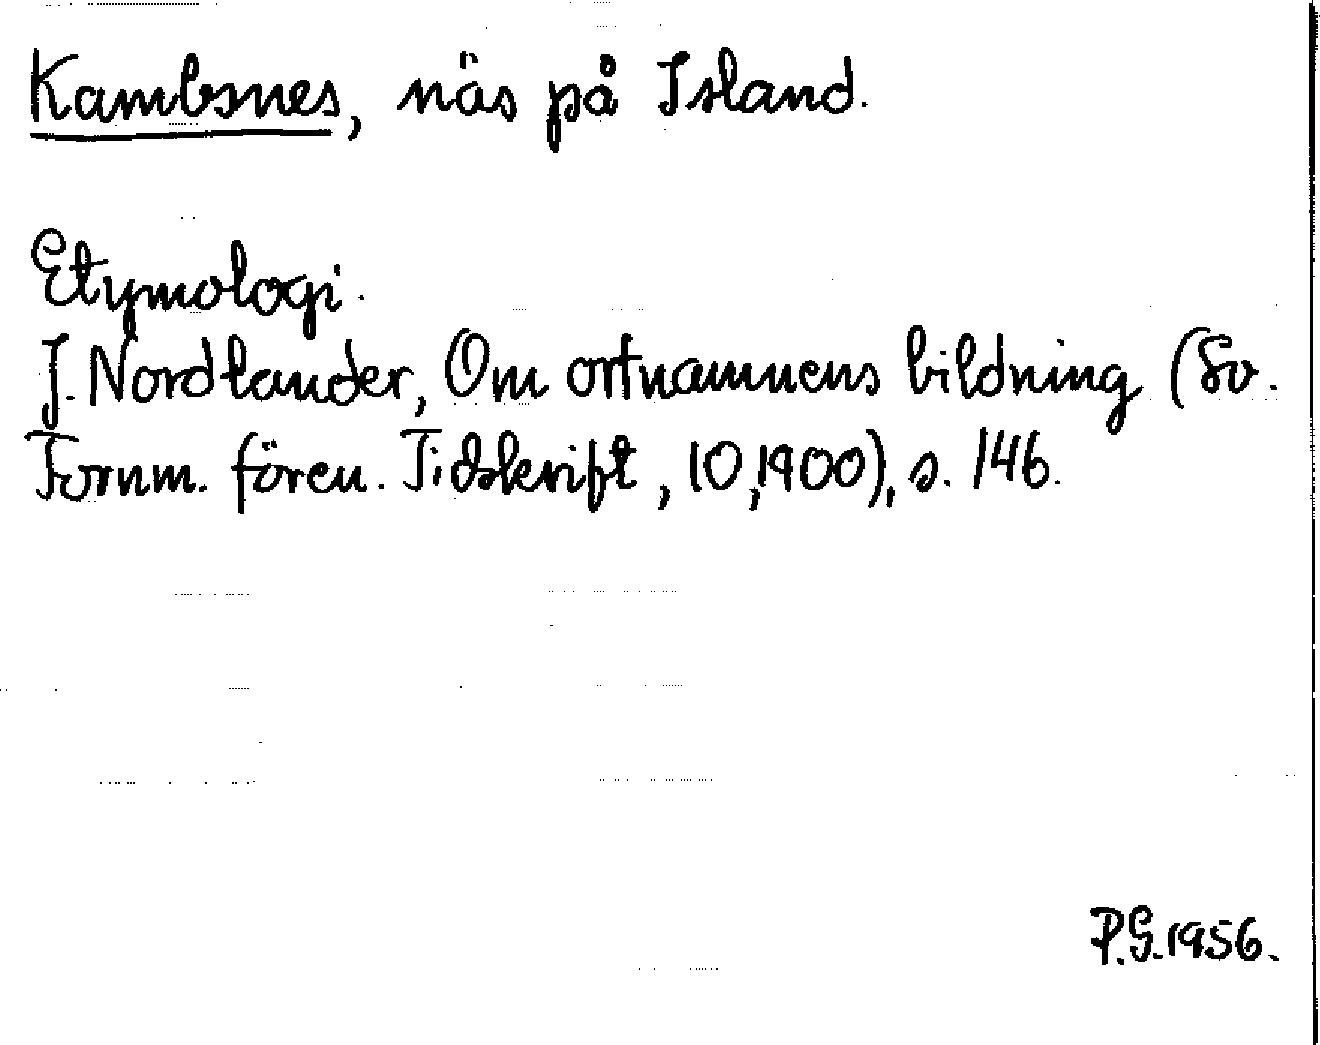 Kambsnes, näs på Island.
Etymologi.
J. Nordlander, Om ortnamnens bildning (Sv.
Fornm. fören. Tidskrift, 10,1900), s. 146.
P.G.1956.